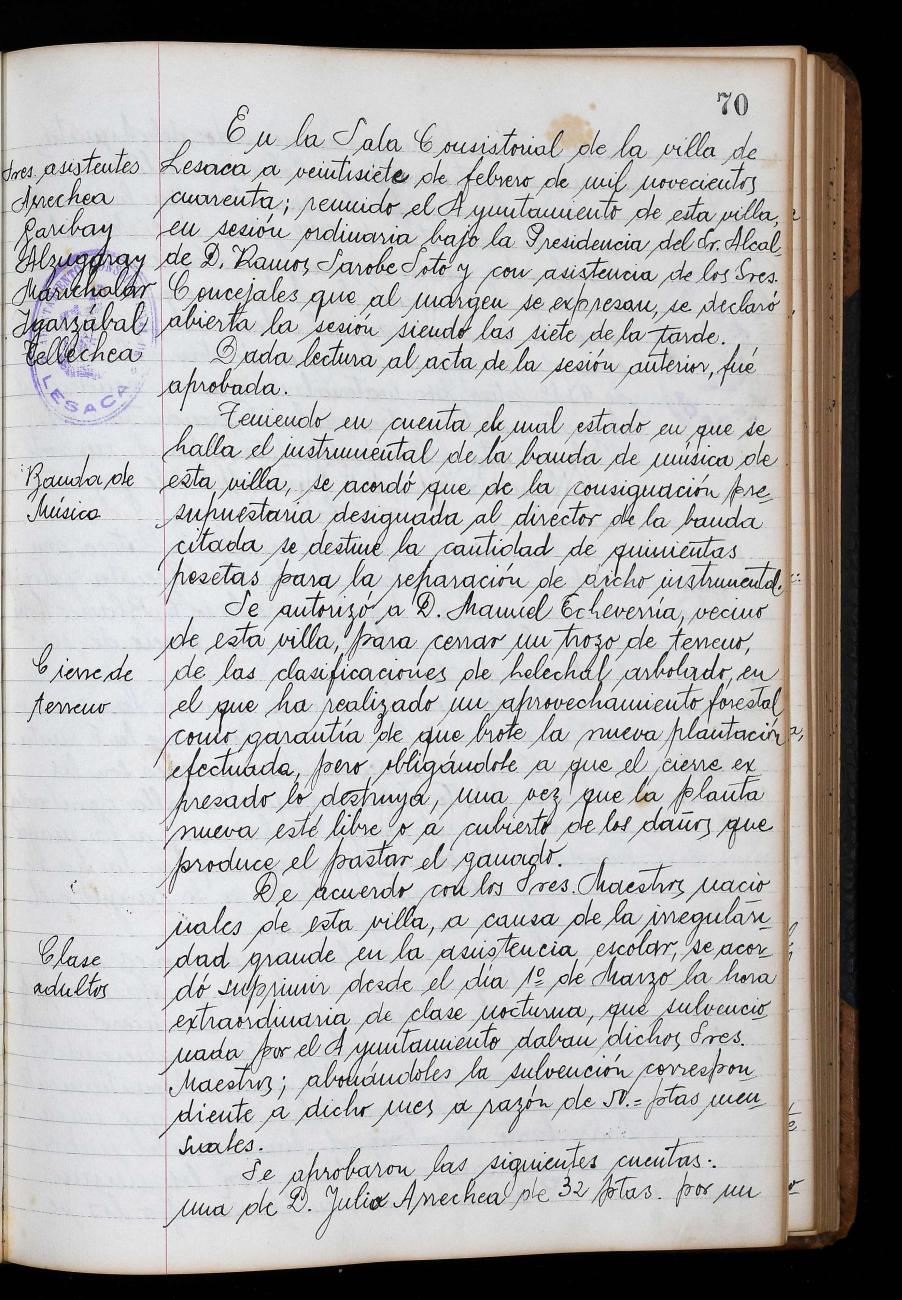 70
En la Sala Consistorial de la villa de
Sres. asistentes
Arrechea
Garibay
Alzugaray
Marichalar
Igarzábal
Tellechea
LESACA
Lesaca a veintisiete de febrero de mil novecientos
cuarenta; reunido el Ayuntamiento de esta villa,
en sesión ordinaria bajo la Presidencia del Sr. Alcal-
de D. Ramos Sarobe Soto y con asistencia de los Sres.
Concejales que al margen se expresan, se declaró
abierta la sesión siendo las siete de la tarde.
Dada lectura al acta de la sesión anterior, fué
aprobada.
Banda de
Música
Teniendo en cuenta el mal estado en que se
halla el instrumental de la banda de música de
esta villa, se acordó que de la consignación pre-
supuestaria designada al director de la banda
citada se destine la cantidad de quinientas
pesetas para la reparación de dicho instrumental.
Cierre de
terreno
Se autorizó a D. Manuel Echeverría, vecino
de esta villa, para cerrar un trozo de terreno,
de las clasificaciones de helechal arbolado, en
el que ha realizado un aprovechamiento forestal
como garantía de que brote la nueva plantación
efectuada, pero obligándole a que el cierre ex-
presado lo destruya, una vez que la planta
nueva esté libre o a cubierto de los daños que
produce el pastar el ganado.
Clase
adultos
De acuerdo con los Sres. Maestros nacio
nales de esta villa, a causa de la irregulari-
dad grande en la asistencia escolar, se acor-
dó suprimir desde el día 1º de Marzo la hora
extraordinaria de clase nocturna, que subvencio-
nada por el Ayuntamiento daban dichos Sres.
Maestros; abonándoles la subvención correspon-
diente a dicho mes a razón de 50.= ptas men-
suales.
Se aprobaron las siguientes cuentas:
una de D. Julio Arrechea de 32 ptas. por un